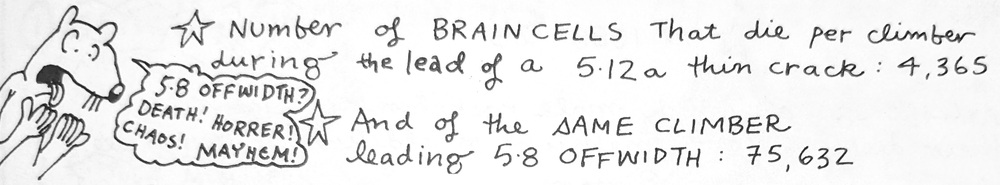 ☆ Number of BRAIN CELLS That die per climber
during the lead of a 5.12a thin crack: 4,365
5.8 OFFWIDTH?
DEATH! HORRER!
CHAOS!
MAYHEM!
☆ And of the SAME CLIMBER
leading 5.8 OFFWIDTH: 75,632